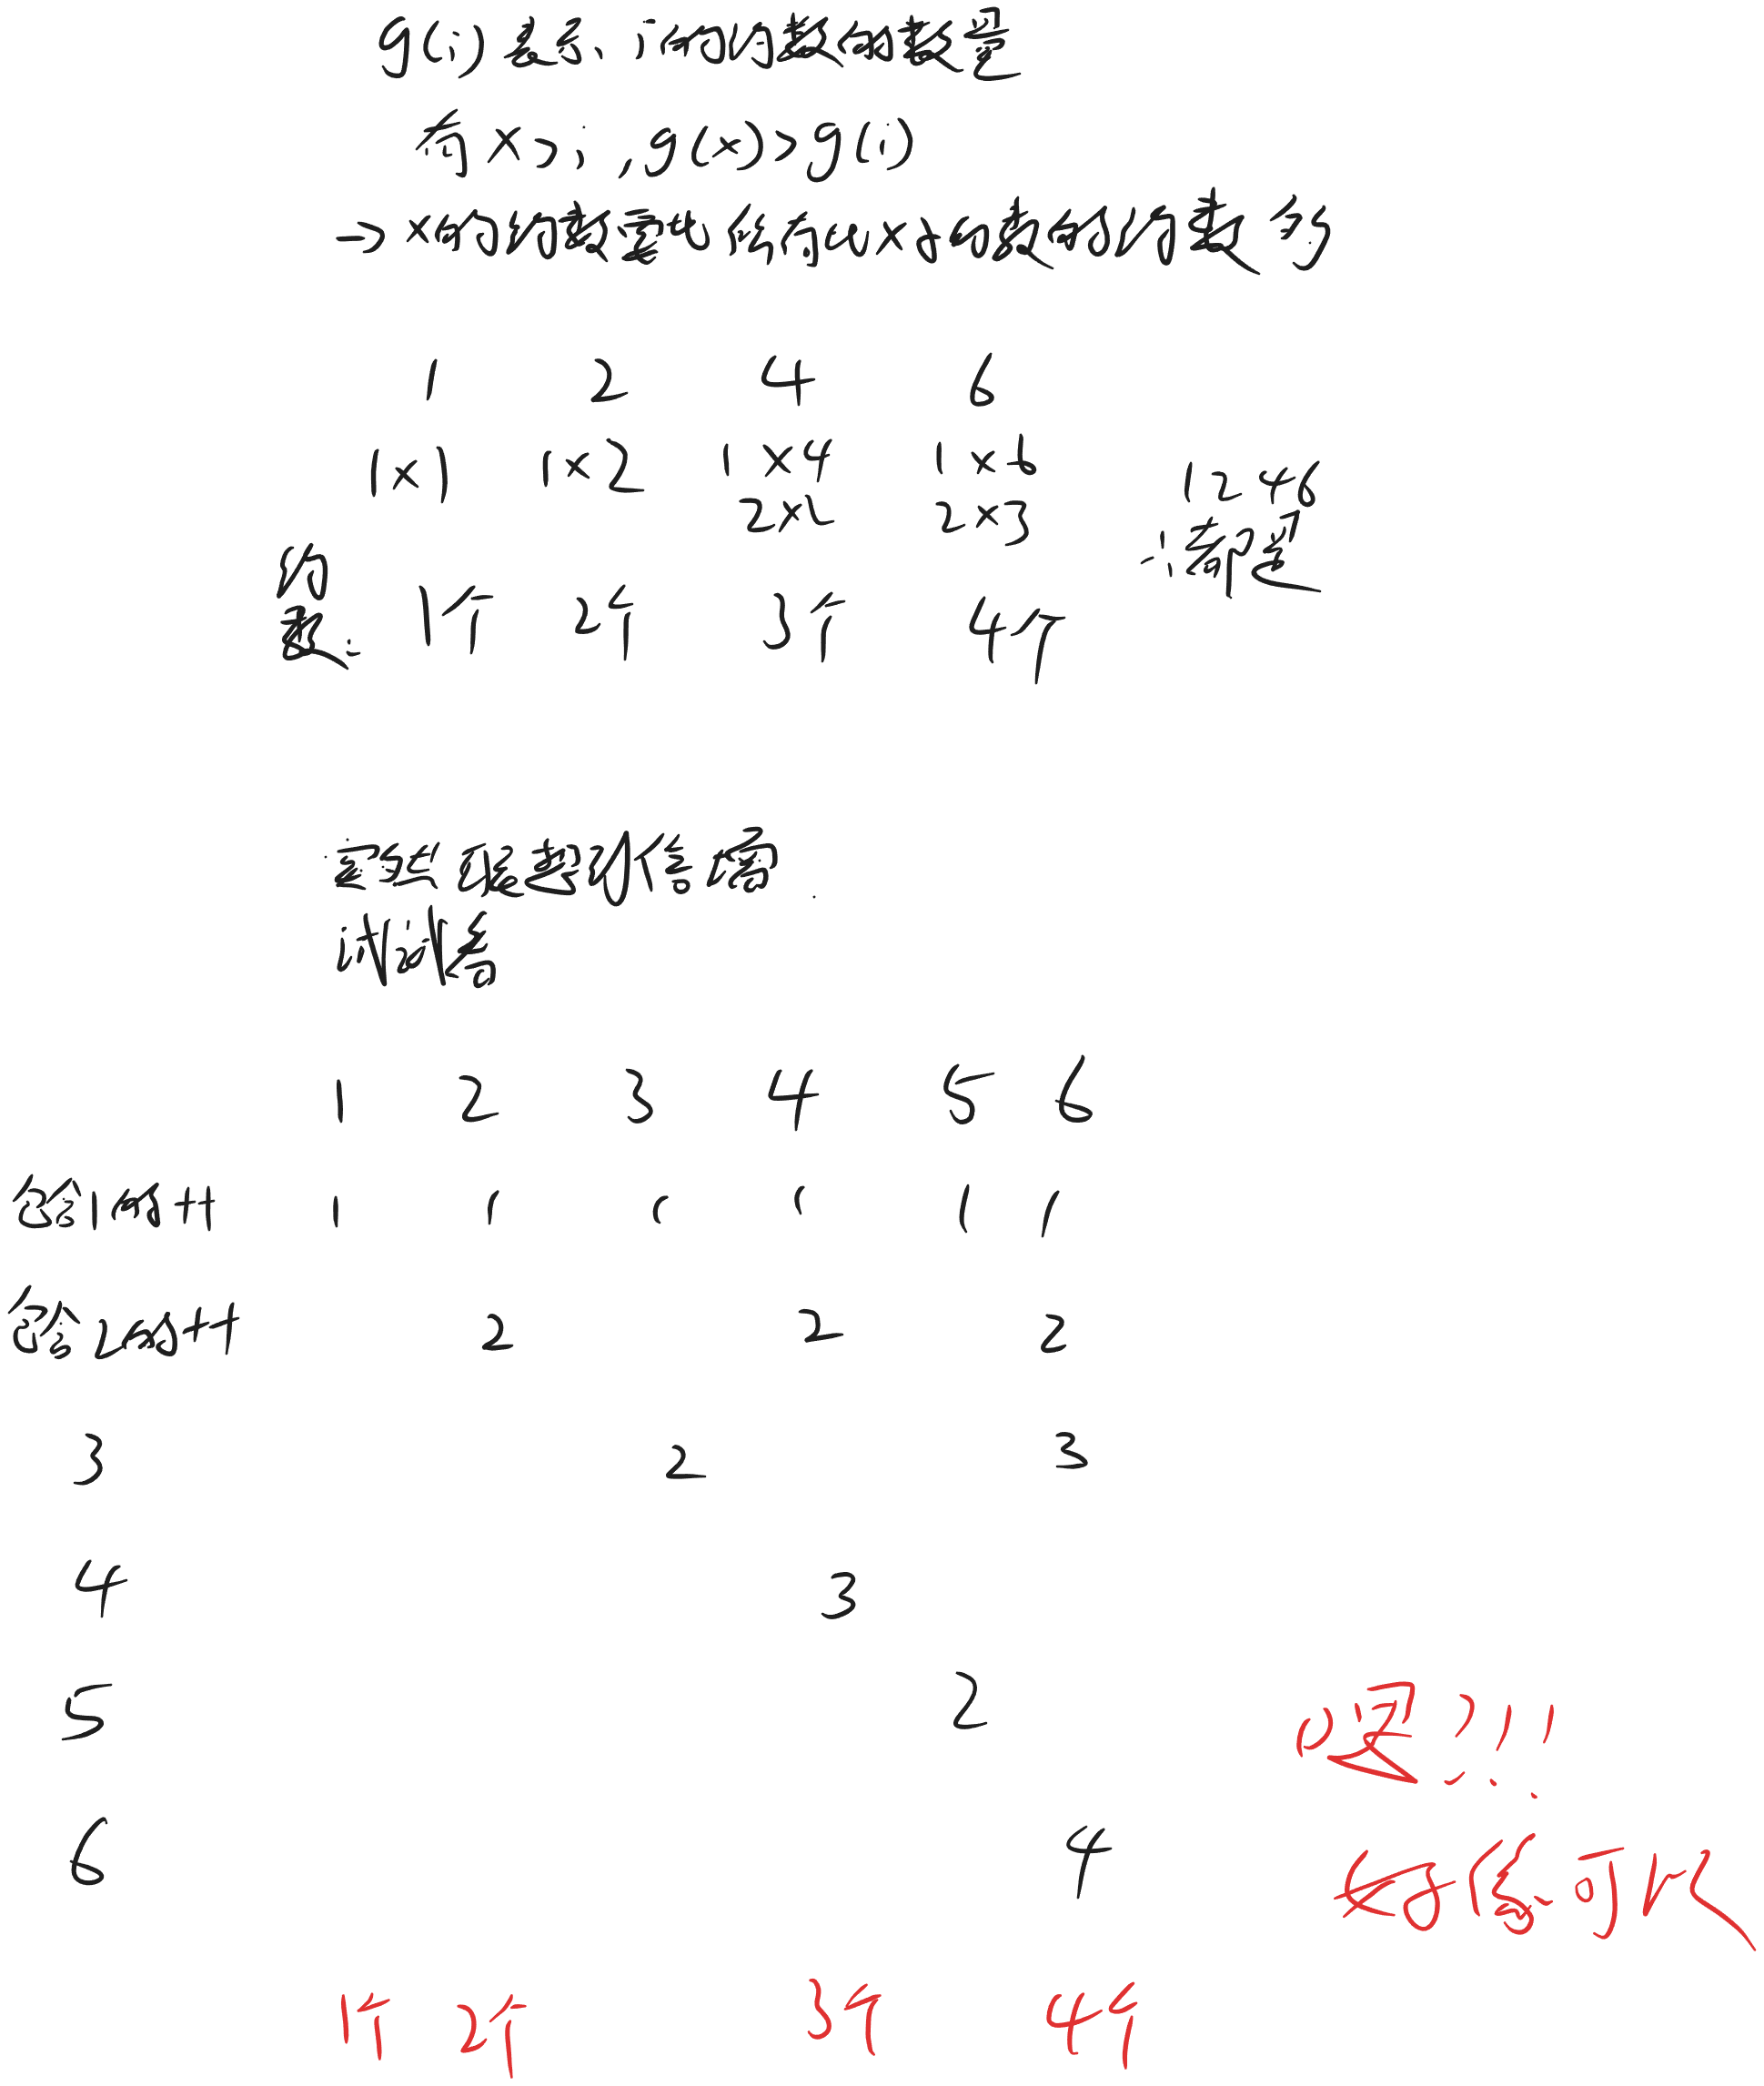 g(i)表示 i的约数的数量
有 x>i, g(x)>g(i)
→ x的约数量比任何以x为约数的约数多
1 2 4 6
1×1 1×2 1×4 1×6
2×2 2×3
1 2 4 6
∴都是
约数: 1个 2个 3个 4个
试试看
1 2 3 4 5 6
包含1的++ 1 1 1 1 1 1
包含2的++ 2 2 2
3 2 3
4 3
5 2
6 4
哎?!!
好像可以
1个 2个 3个 4个